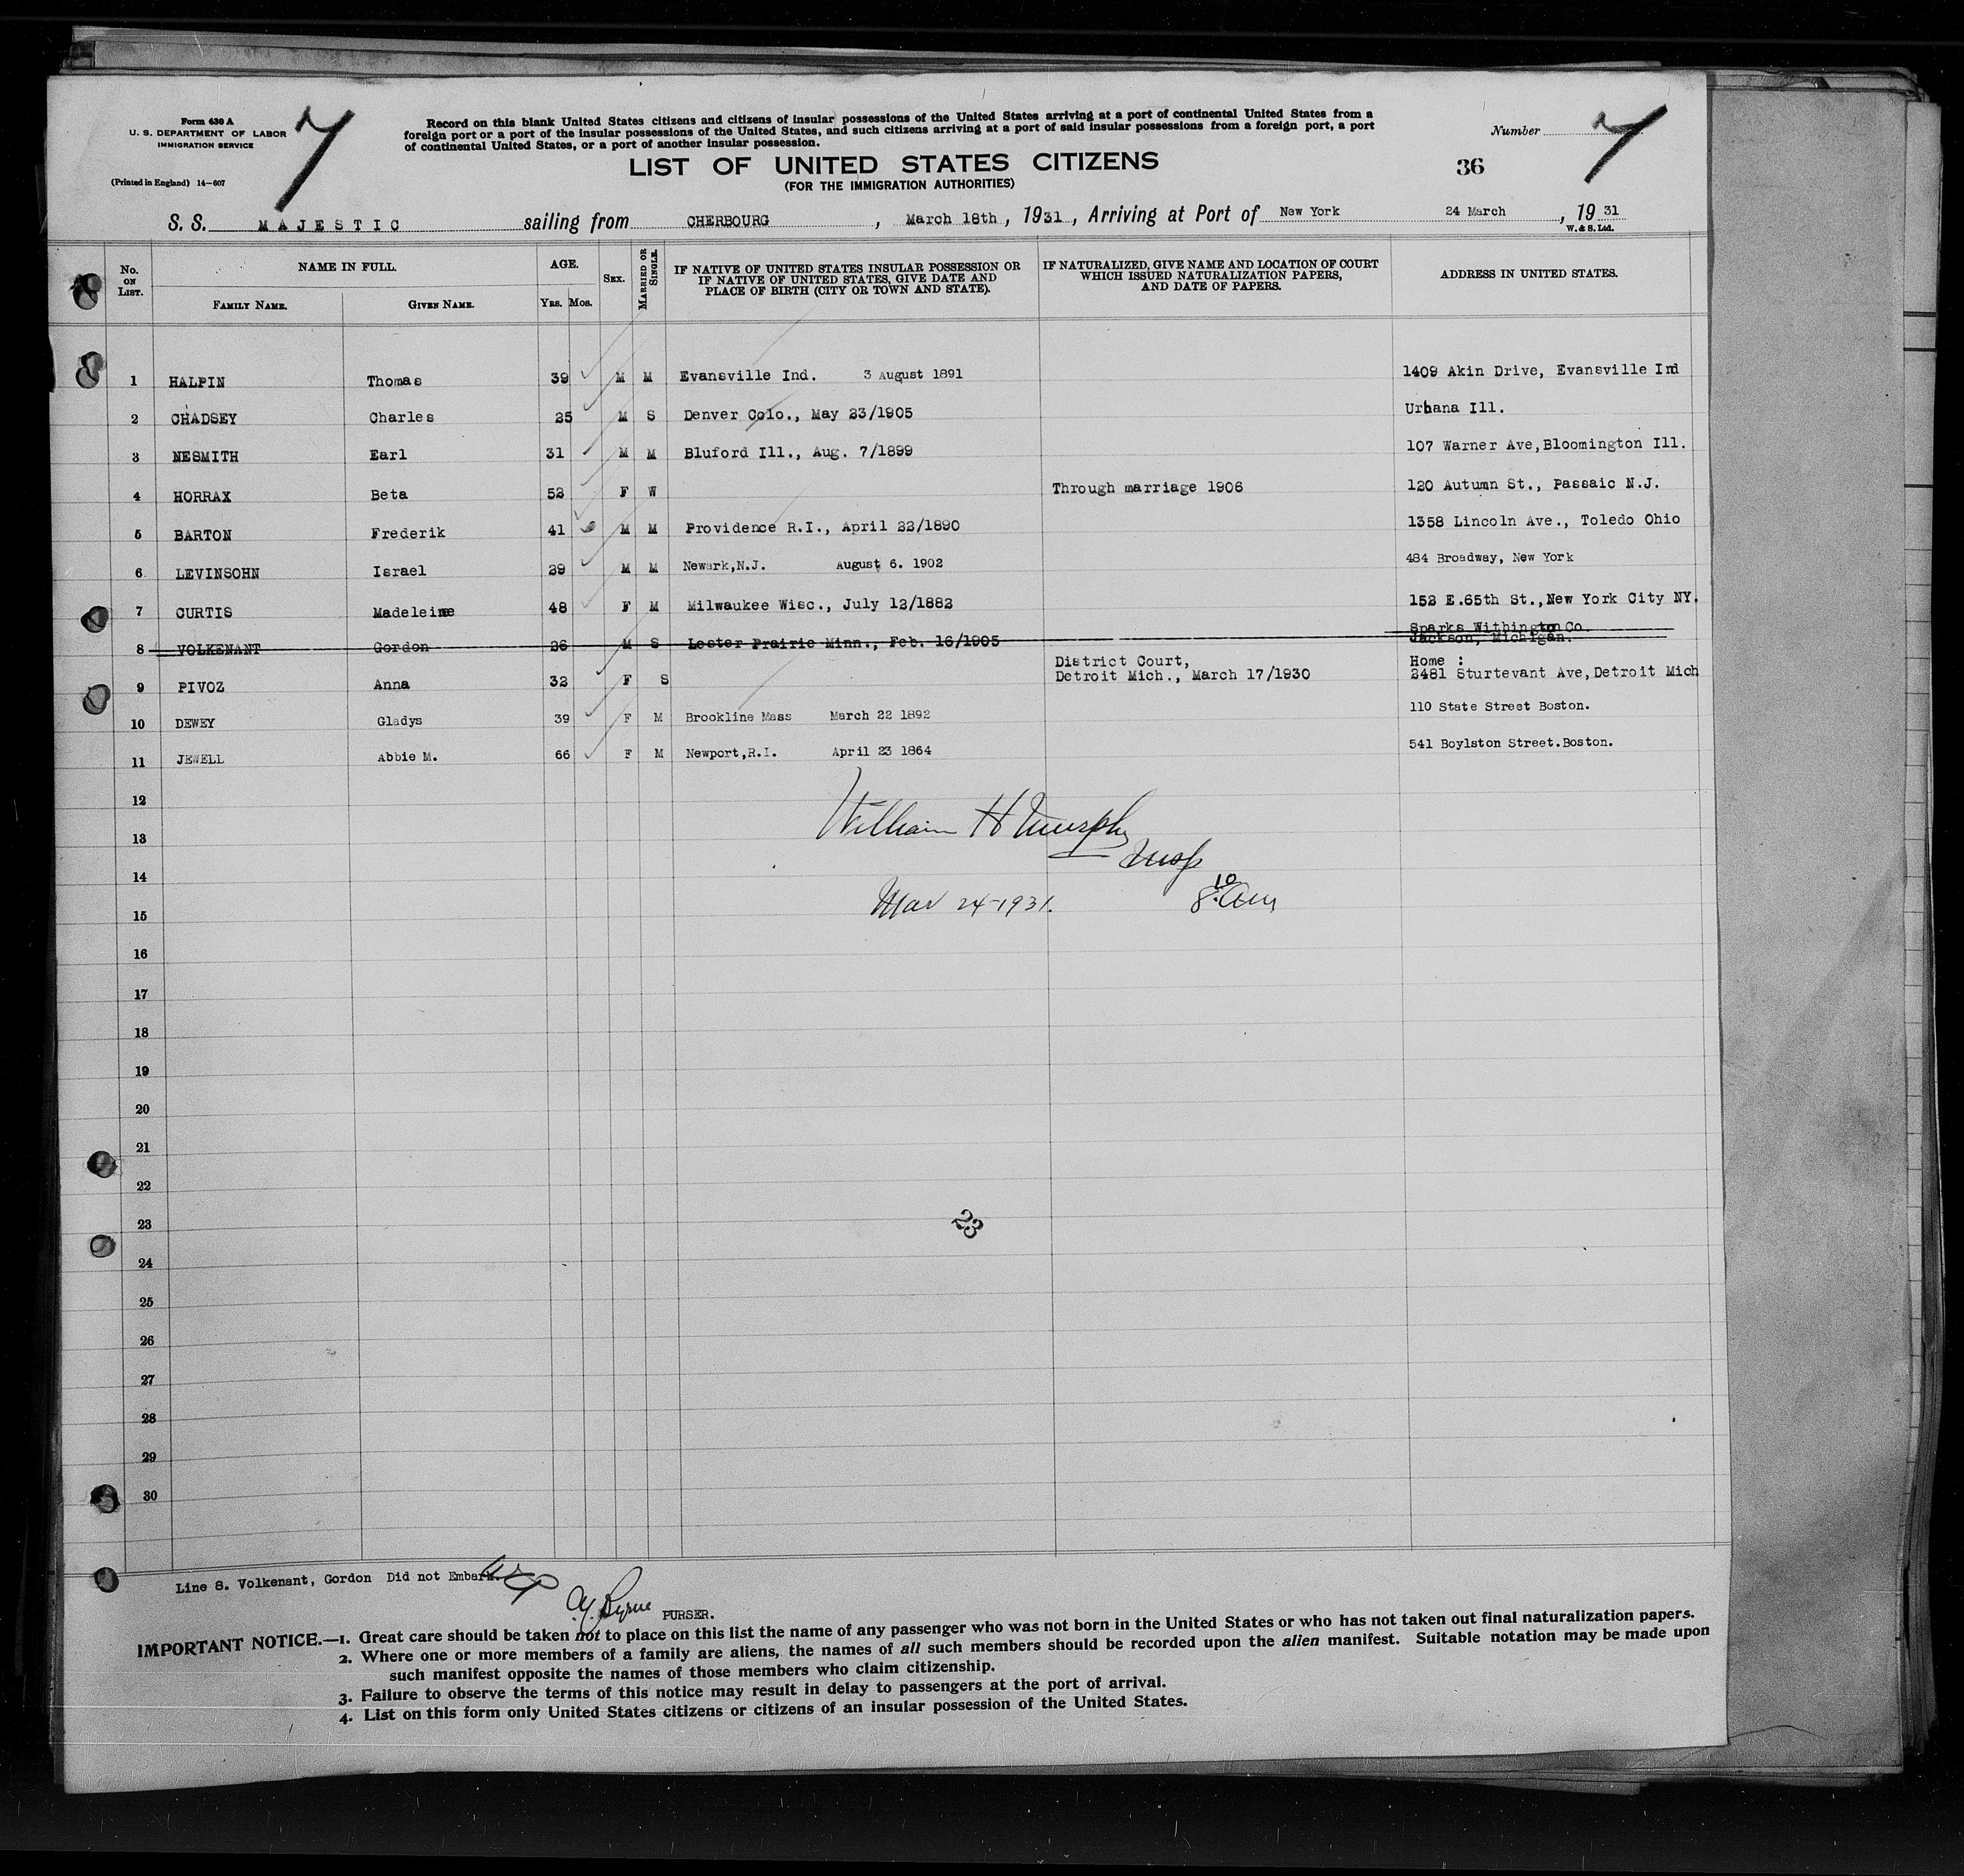 Form 630 A
U. S. DEPARTMENT OF LABOR
IMMIGRATION SERVICE
(Printed in England) 14—607
7
Record on this blank United States citizens and citizens of insular possessions of the United States arriving at a port of continental United States from a
foreign port or a port of the insular possessions of the United States, and such citizens arriving at a port of said insular possessions from a foreign port, a port
of continental United States, or a port of another insular possession.
LIST OF UNITED STATES CITIZENS
(FOR THE IMMIGRATION AUTHORITIES)
Number 7
36
S. S. MAJESTIC sailing from CHERBOURG, March 18th, 1931, Arriving at Port of New York 24 March, 1931
W. & S. Ltd.
No. ON LIST. NAME IN FULL. FAMILY NAME. GIVEN NAME. AGE. YRS. MOS. SEX. MARRIED OR SINGLE. IF NATIVE OF UNITED STATES INSULAR POSSESSION OR IF NATIVE OF UNITED STATES, GIVE DATE AND PLACE OF BIRTH (CITY OR TOWN AND STATE). IF NATURALIZED, GIVE NAME AND LOCATION OF COURT WHICH ISSUED NATURALIZATION PAPERS, AND DATE OF PAPERS. ADDRESS IN UNITED STATES.
1 HALPIN Thomas 39 M M Evansville Ind. 3 August 1891 1409 Akin Drive, Evansville Ind
2 CHADSEY Charles 25 M S Denver Colo., May 23/1905 Urbana Ill.
3 NESMITH Earl 31 M M Bluford Ill., Aug. 7/1899 107 Warner Ave,Bloomington Ill.
4 HORRAX Beta 52 F W Through marriage 1906 120 Autumn St., Passaic N.J.
5 BARTON Frederik 41 M M Providence R.I., April 22/1890 1358 Lincoln Ave., Toledo Ohio
6 LEVINSOHN Israel 29 M M Newark,N.J. August 6. 1902 484 Broadway, New York
7 CURTIS Madeleine 48 F M Milwaukee Wisc., July 12/1882 152 E.65th St.,New York City NY.
8 VOLKENANT Gordon 26 M S Lester Prairie Minn., Feb. 16/1905 Sparks Withington Co.
Jackson, Michigan.
9 PIVOZ Anna 32 F S District Court, Home :
Detroit Mich., March 17/1930 2481 Sturtevant Ave,Detroit Mich
10 DEWEY Gladys 39 F M Brookline Mass March 22 1892 110 State Street Boston.
11 JEWELL Abbie M. 66 F M Newport,R.I. April 23 1864 541 Boylston Street.Boston.
12
William H Murphy
13
Insp
14
15 Mar 24-1931. 8.10 am
16
17
18
19
20
21
22
23
23
24
25
26
27
28
29
30
Line 8. Volkenant, Gordon Did not Embark.
Byrne PURSER.
IMPORTANT NOTICE.—1. Great care should be taken not to place on this list the name of any passenger who was not born in the United States or who has not taken out final naturalization papers.
2. Where one or more members of a family are aliens, the names of all such members should be recorded upon the alien manifest. Suitable notation may be made upon
such manifest opposite the names of those members who claim citizenship.
3. Failure to observe the terms of this notice may result in delay to passengers at the port of arrival.
4. List on this form only United States citizens or citizens of an insular possession of the United States.